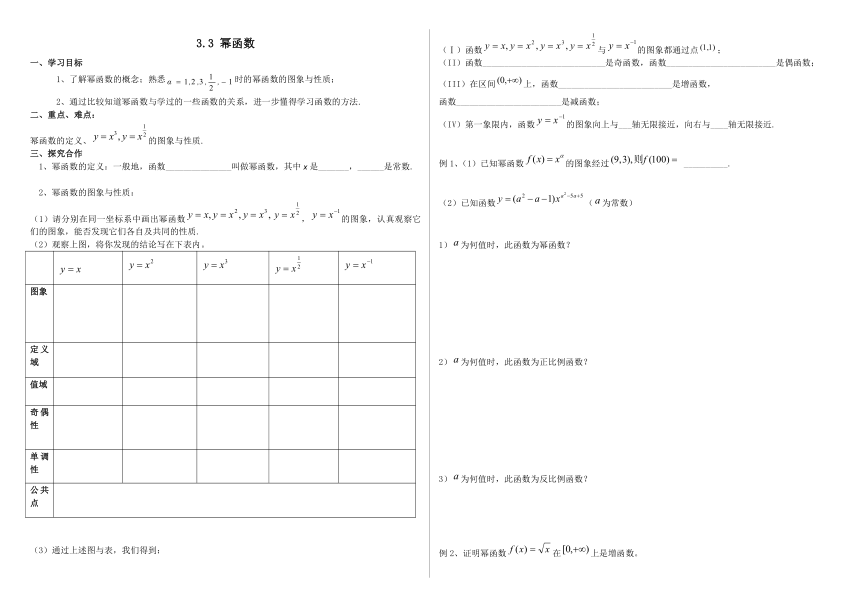 3.3 幂函数
一、学习目标
1、了解幂函数的概念；熟悉 α = 1,2,3,1/2,−1 时的幂函数的图象与性质；
2、通过比较知道幂函数与学过的一些函数的关系，进一步懂得学习函数的方法.
二、重点、难点：
幂函数的定义、y = x³, y = x^(1/2) 的图象与性质.
三、探究合作
1、幂函数的定义：一般地，函数______________叫做幂函数，其中 x 是_______，______是常数.
2、幂函数的图象与性质：
（1）请分别在同一坐标系中画出幂函数 y = x, y = x², y = x³, y = x^(1/2)，y = x⁻¹ 的图象，认真观察它
们的图象，能否发现它们各自及共同的性质.
（2）观察上图，将你发现的结论写在下表内。
y = x y = x² y = x³ y = x^(1/2) y = x⁻¹
图象
定义
域
值域
奇偶
性
单调
性
公共
点
（3）通过上述图与表，我们得到：
（Ⅰ）函数 y = x, y = x², y = x³, y = x^(1/2) 与 y = x⁻¹ 的图象都通过点 (1,1)；
（II）函数__________________________是奇函数，函数_______________________是偶函数；
（III）在区间 (0,+∞) 上，函数________________________是增函数，
函数______________________是减函数；
（IV）第一象限内，函数 y = x⁻¹ 的图象向上与___轴无限接近，向右与____轴无限接近.
例1、（I）已知幂函数 f(x) = x^α 的图象经过 (9,3),则f(100) = __________.
（2）已知函数 y = (a² − a − 1)x^(a²−5a+5)（a 为常数）
1）a 为何值时，此函数为幂函数？
2）a 为何值时，此函数为正比例函数？
3）a 为何值时，此函数为反比例函数？
例2、证明幂函数 f(x) = √x 在 [0,+∞) 上是增函数。